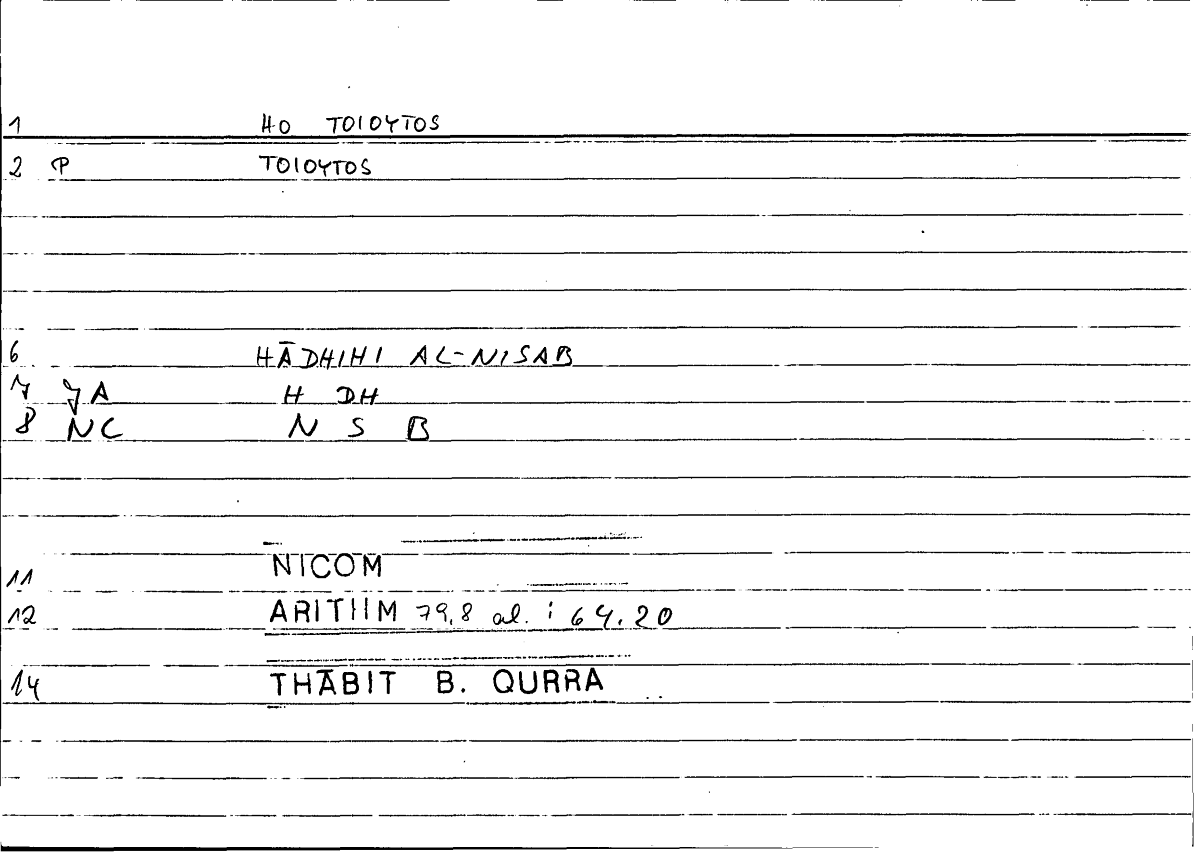 1 HO TOIOYTOS
2 P TOIOYTOS
6 HĀDHIHI AL-NISAB
7 JA H DH
8 NC N S B
11 NICOM
12 ARITHM 79,8 al. : 64.20
14 THĀBIT B. QURRA